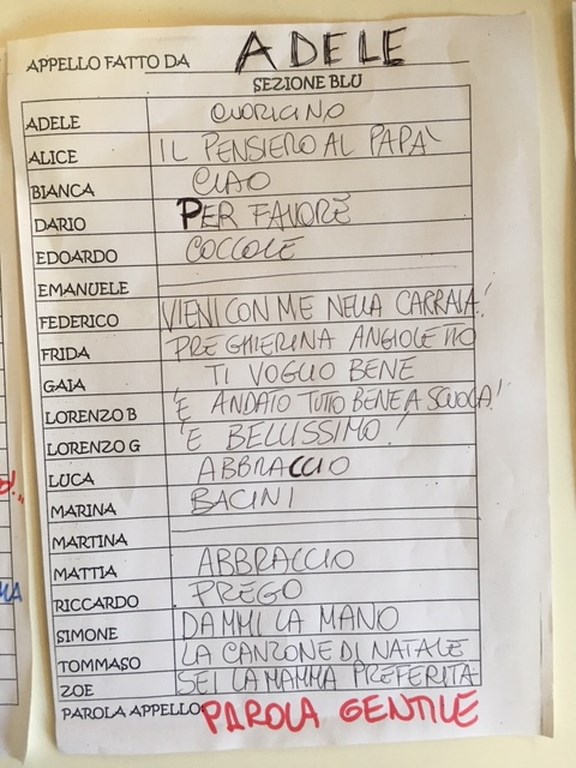 APPELLO FATTO DA ADELE
SEZIONE BLU
ADELE CUORICINO
ALICE IL PENSIERO AL PAPÀ
BIANCA CIAO
DARIO PER FAVORE
EDOARDO COCCOLE
EMANUELE
FEDERICO VIENI CON ME NELLA CARRAIA!
FRIDA PREGHIERINA ANGIOLETTO
GAIA TI VOGLIO BENE
LORENZO B 'E ANDATO TUTTO BENE A SCUOLA!
LORENZO G 'E BELLISSIMO!
LUCA ABBRACCIO
MARINA BACINI
MARTINA
MATTIA ABBRACCIO
RICCARDO PREGO
SIMONE DAMMI LA MANO
TOMMASO LA CANZONE DI NATALE
ZOE SEI LA MAMMA PREFERITA
PAROLA APPELLO: PAROLA GENTILE